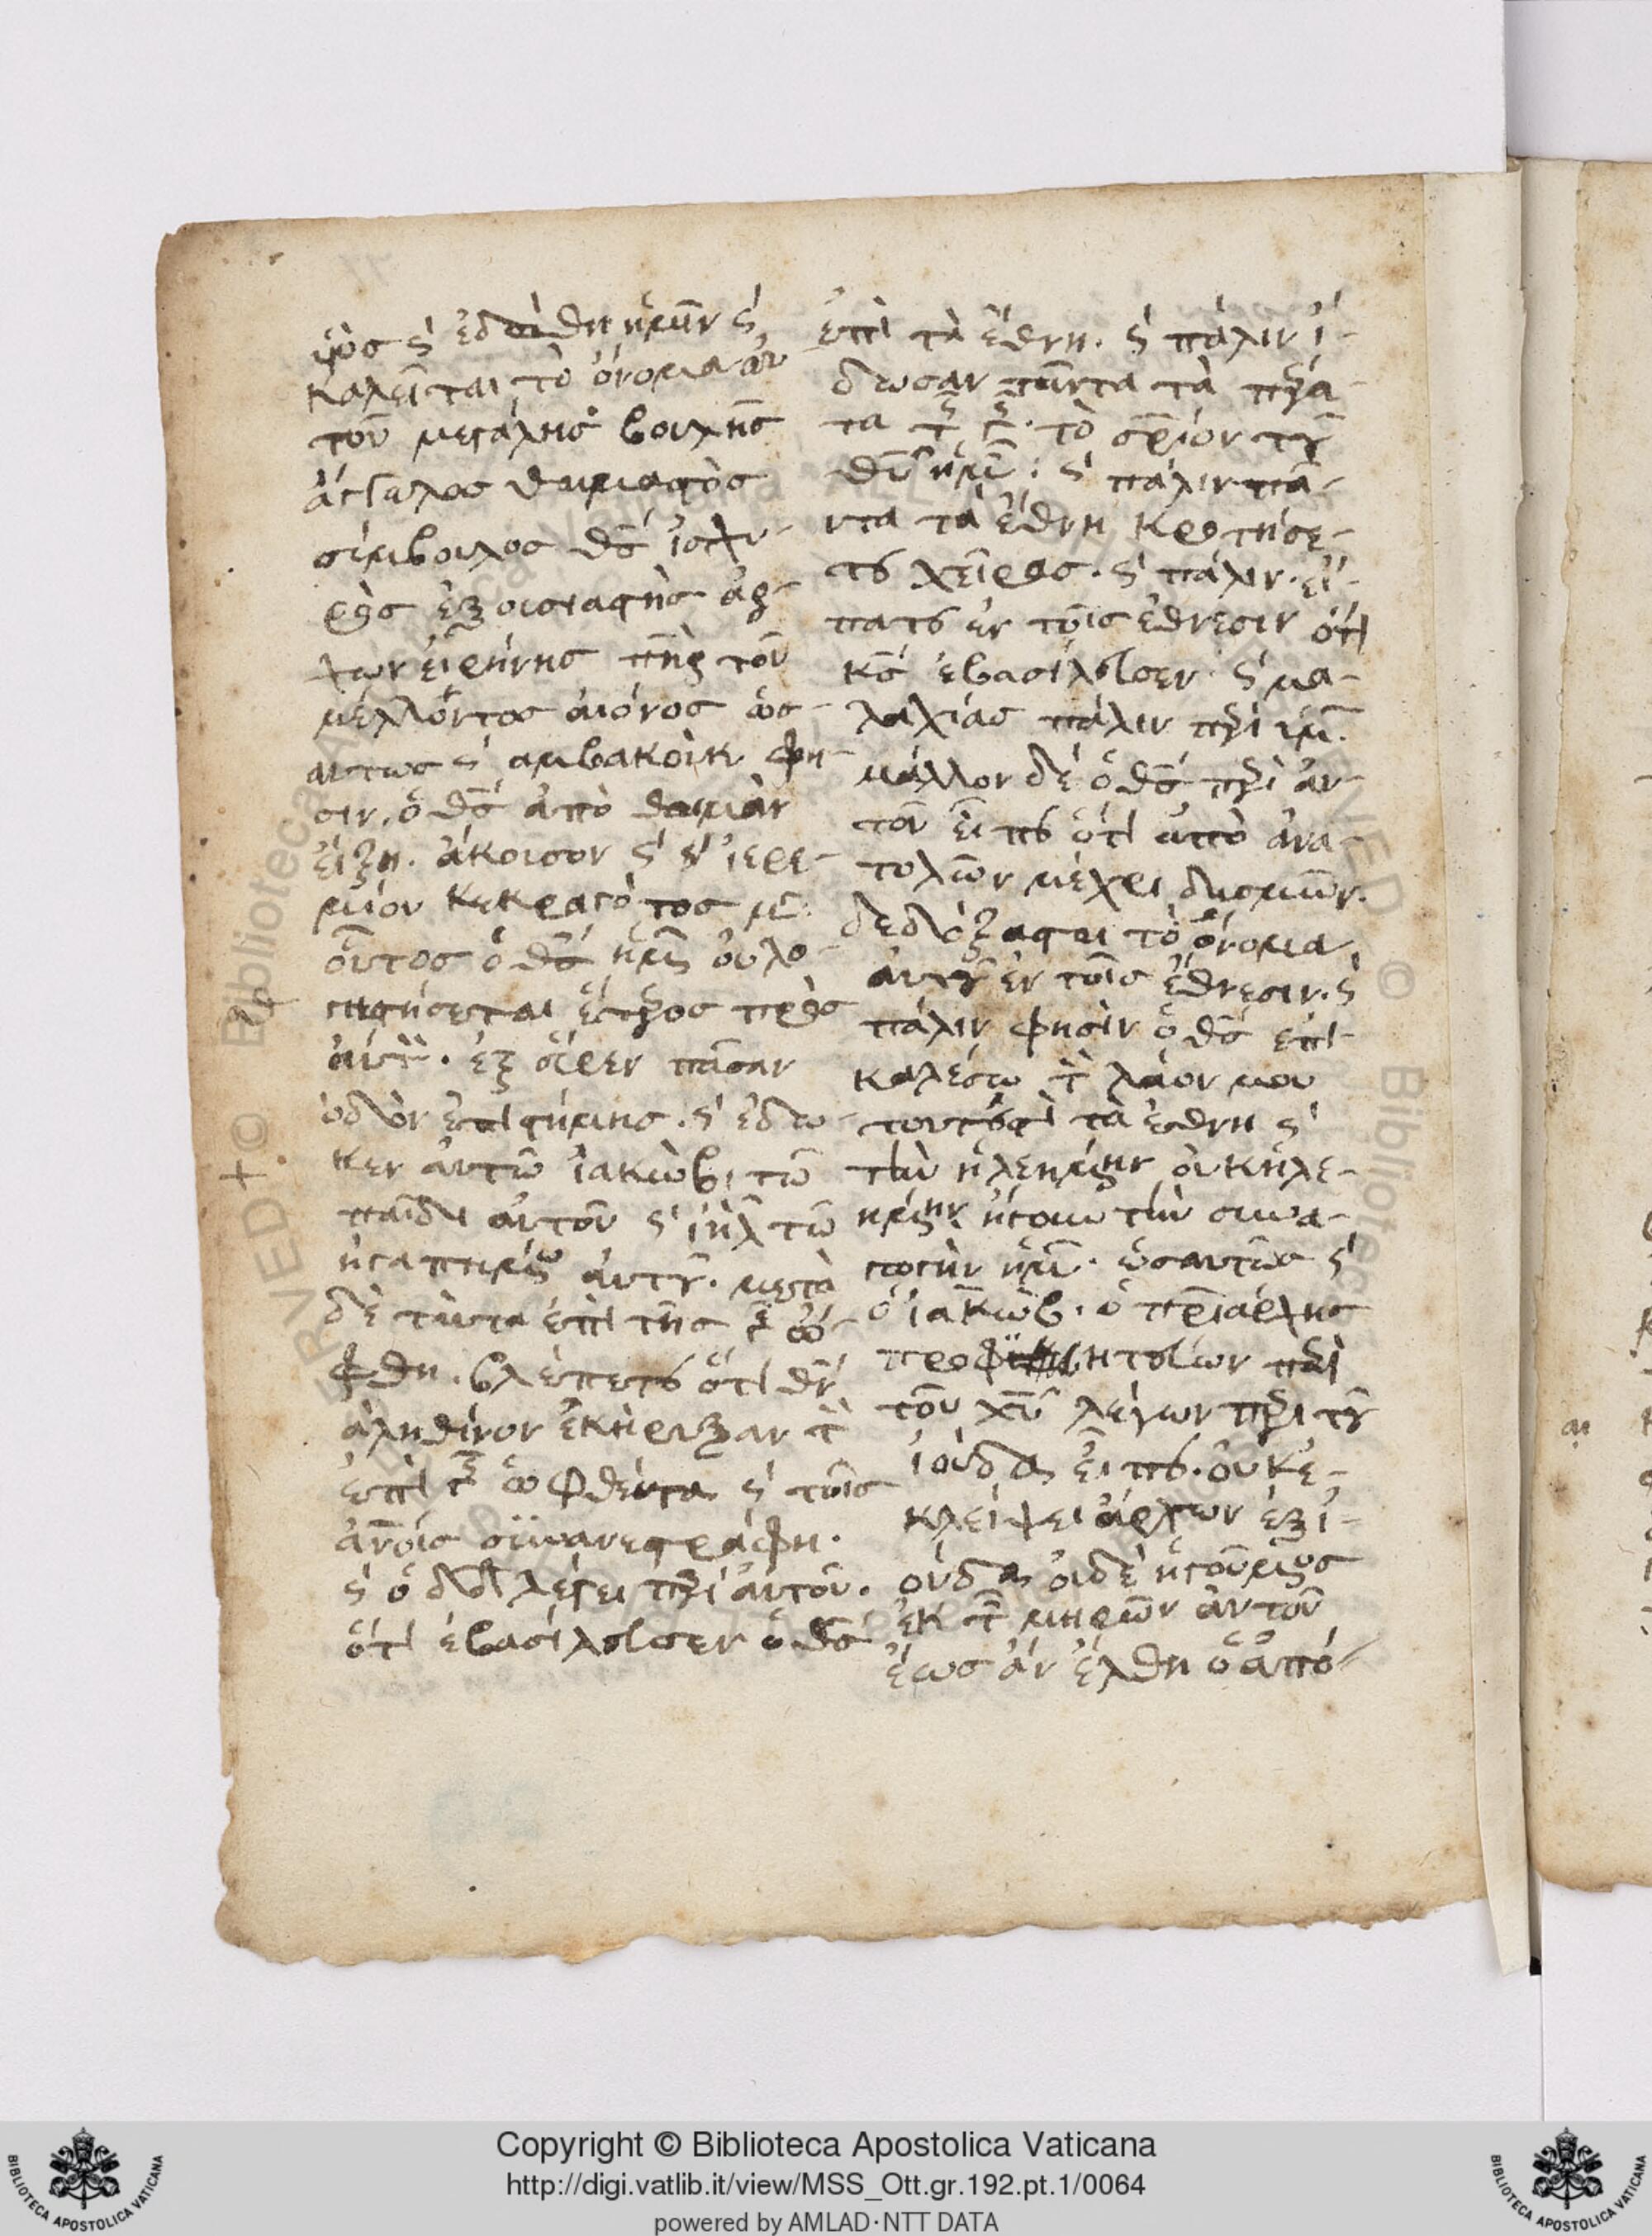 ϋἱὸς ϗ ἐδώθη ἡμῖν ϗ
καλεῖται τὸ ὄνομα αὐ
τοῦ μεγάλης βουλῆς
ἄγγελος θαυμαστὸς
σύμβουλος θ̅ς ἰσχυ-
ρὸς ἐξουσιαστὴς ἄρ-
χων εἰρήνης π̅ηρ τοῦ
μέλλοντος αἰόνος ὡσ-
αυτως ϗ αμβακοὺκ φη-
σιν, ὁ θ̅ς ἀπὸ θαιμὰν
εἵξη. ἄκουσον ϗ
ἱερε-
μίου κεκραγότος
οὗτος ὁ θ̅ς ἡμῶν οὐ λο-
γιστήσεται ἕτερος πρὸς
αὐτὸν. ἐξεῦρεν πᾶσαν
ὁδὸν ἐπιστήμης. ϗ ἔδω-
κεν αὐτῶ ἰακὼβ τῶ
παῖδι αὐτοῦ ϗ ι̅η̅λ τῶ
ἠγαπημένω αὐτοῦ. μετὰ
δὲ ταῦτα ἐπὶ τῆς γῆς ὤ-
φθη. βλέπετε ὅτι θ̅ν
ἀληθινὸν ἐκήρυξαν τὸν
ἐπὶ γῆς ὠφθέντα ϗ τοῖς
ἀν̅οις συναναστράφη.
ϗ ὁ δα̅δ λέγει περὶ αὐτοῦ.
ὅτι ἐβασίλευσεν ὁ θ̅ς
ἐπὶ τὰ ἔθνη. ϗ πάλιν ἴ-
δωσαν πάντα τὰ πέρα-
τα τῆς γῆς. τὸ σ̅ριον τοῦ
θ̅υ ἡμῶν: ϗ πάλιν πά-
ντα τὰ ἔθνη κροτήσα-
τε χεῖρας. ϗ πάλιν. εἴ-
πατε ἐν τοῖς ἔθνεσιν ὅτι
κ̅ς ἐβασίλευσεν. ϗ μα-
λαχίας πάλιν περὶ ἡμῶν.
μάλλον δὲ ὁ θ̅ς περὶ αὐ-
τοῦ εἶπε ὅτι ἀπὸ ἀνα-
τολῶν μέχρι δυσμῶν.
δεδόξασται τὸ ὄνομα
αὐτοῦ ἐν τοῖς ἔθνεσιν. ϗ
πάλιν φησὶν ὁ θ̅ς ἐπι-
καλέσω τὸν λαόν μου
τουτέστι τὰ ἔθνη ϗ
τὴν ἠλεημένην οὐκ ἠλε-
ημένην ἤγουν τὴν συνα-
γωγὴν ἡμῶν. ὡσαυτῶς ϗ
ὁ ἰακὼβ. ὁ π̅ριάρχης
προφητεύων περὶ
τοῦ χ̅υ λέγων περὶ τοῦ
ἰούδα εἶπε. οὐκ ἐ-
κλείψει ἄρχων ἐξ ἰ-
ούδα οὐδὲ ἡγούμενος
ἐκ τῶν μηρῶν αὐτοῦ
ἕως ἂν ἔλθη ὁ ἀπό-
Copyright © Biblioteca Apostolica Vaticana
http://digi.vatlib.it/view/MSS_Ott.gr.192.pt.1/0064
powered by AMLAD·NTT DATA